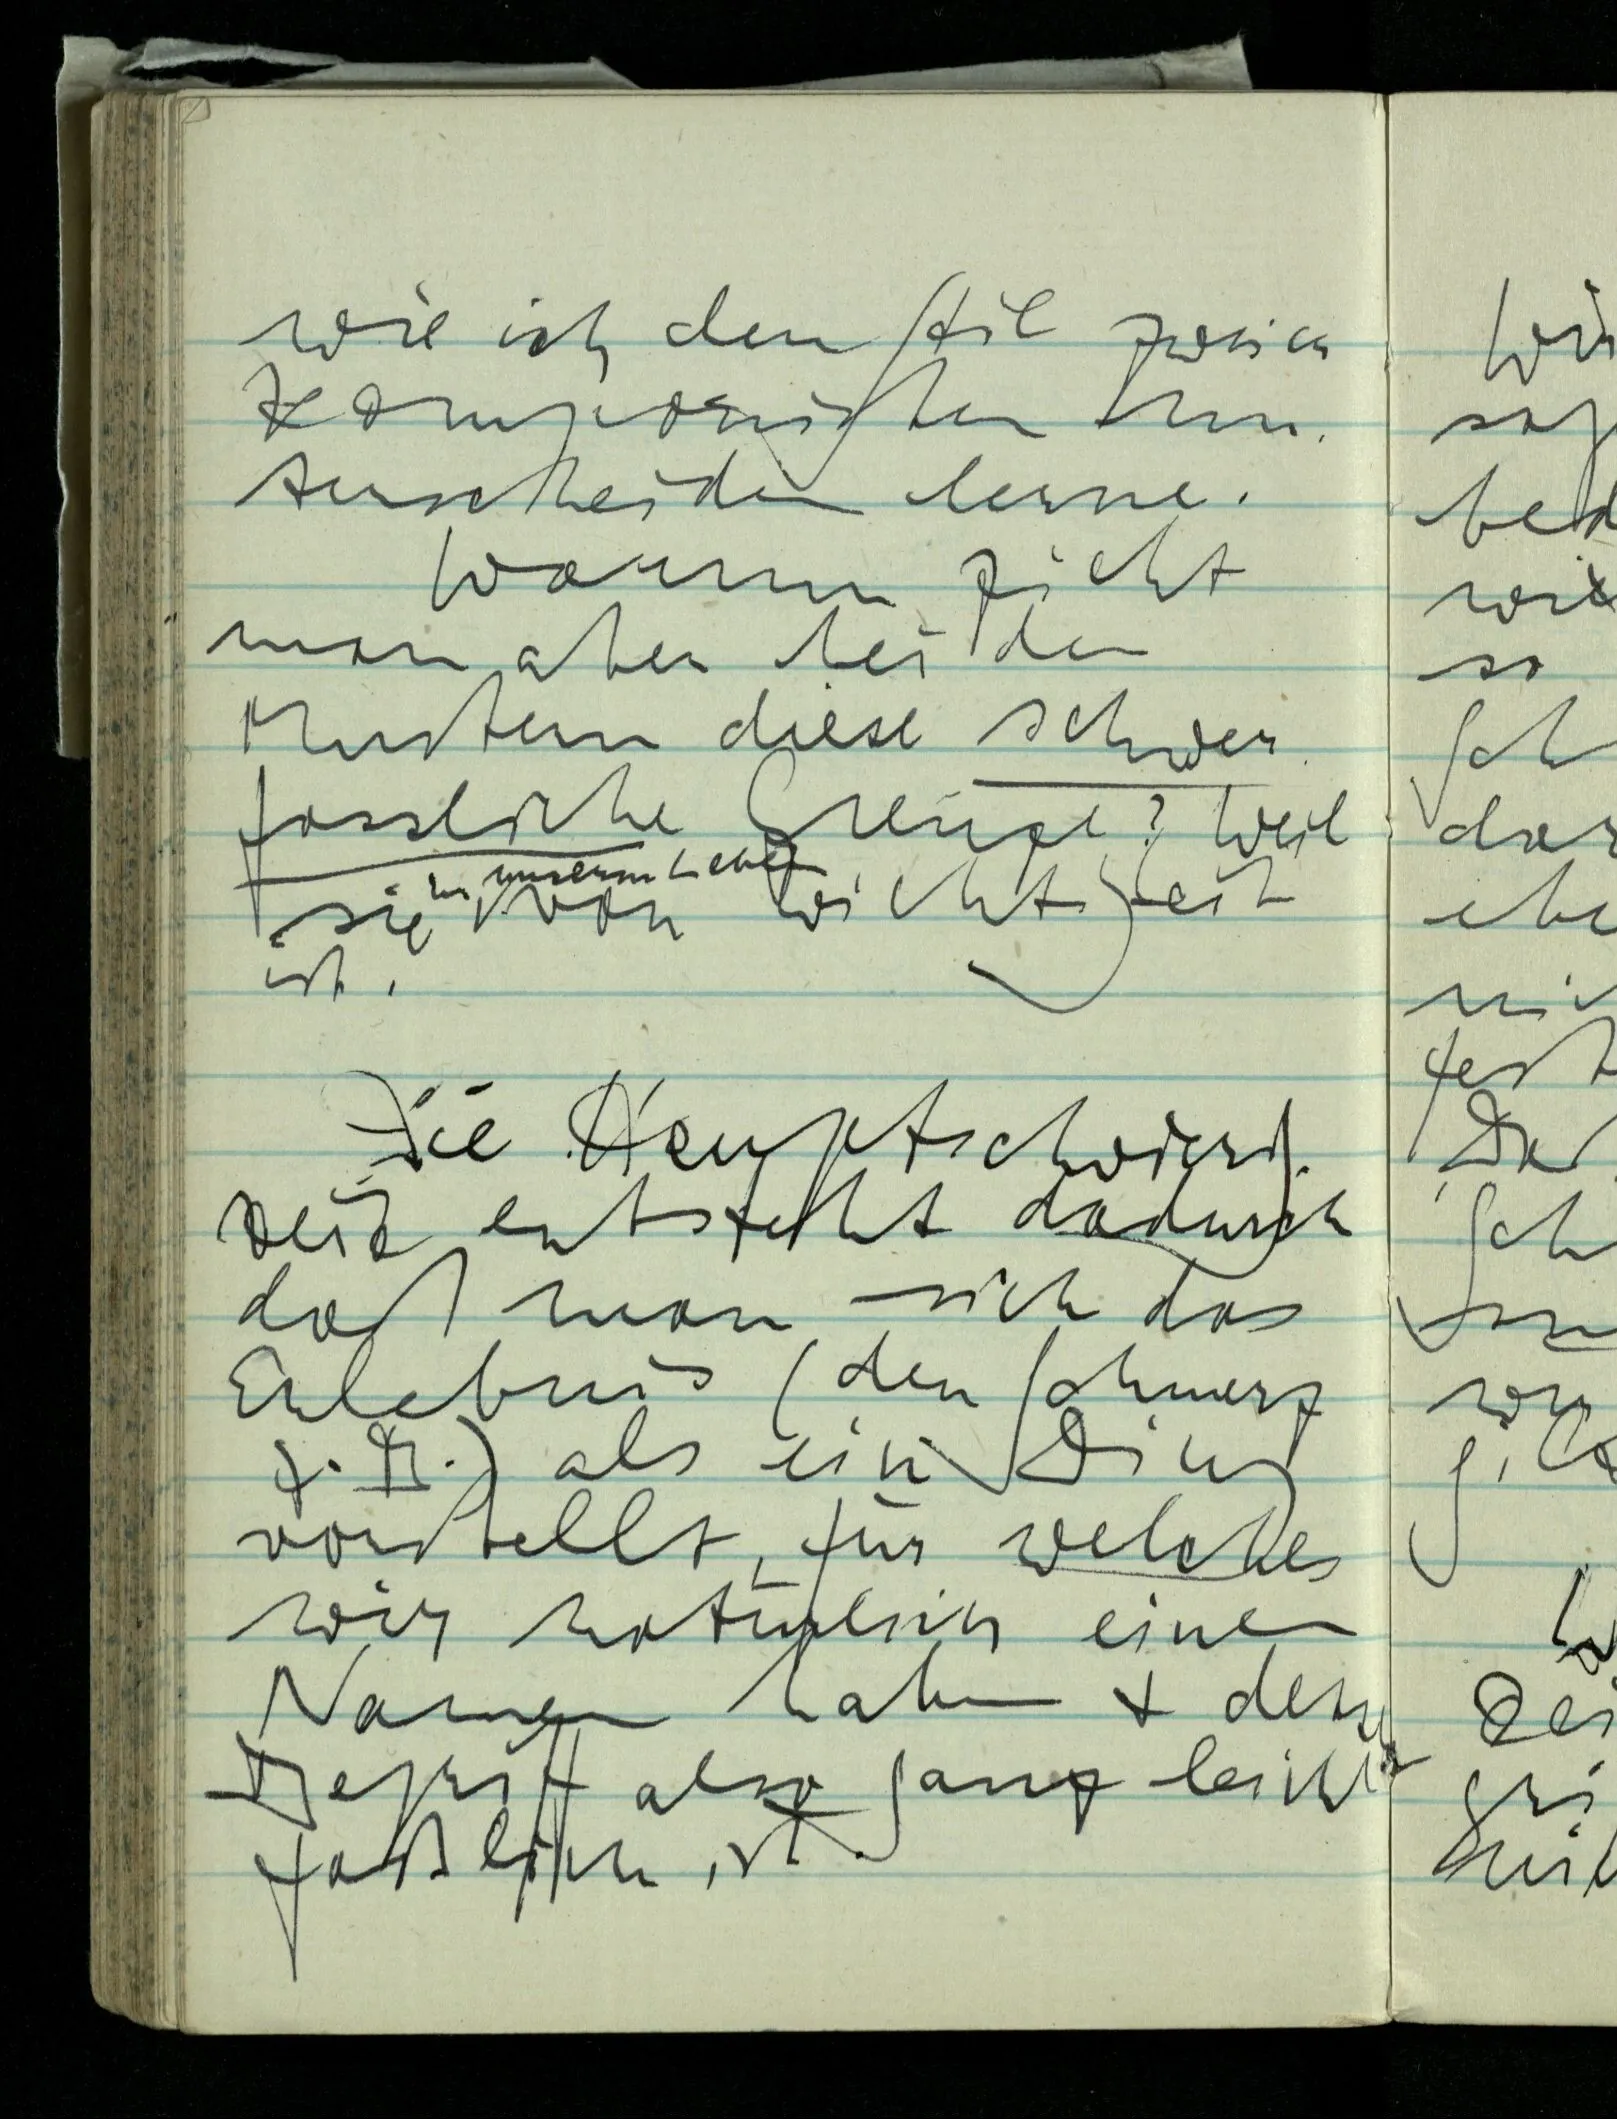 wie ich den Stil zweier
Komponisten un-
terscheiden lerne.
Warum zieht
man aber bei den
Mustern diese schwer
fassliche Grenze? Weil
sie in unserm Leben von Wichtigkeit
ist.
Die Hauptschwierig-
keit entsteht dadurch
daß man sich das
Erlebnis (den Schmerz
z.B.) als ein Ding
vorstellt, für welches
wir natürlich einen
Namen haben + dessen
Begriff also ganz leicht
faßlich ist.